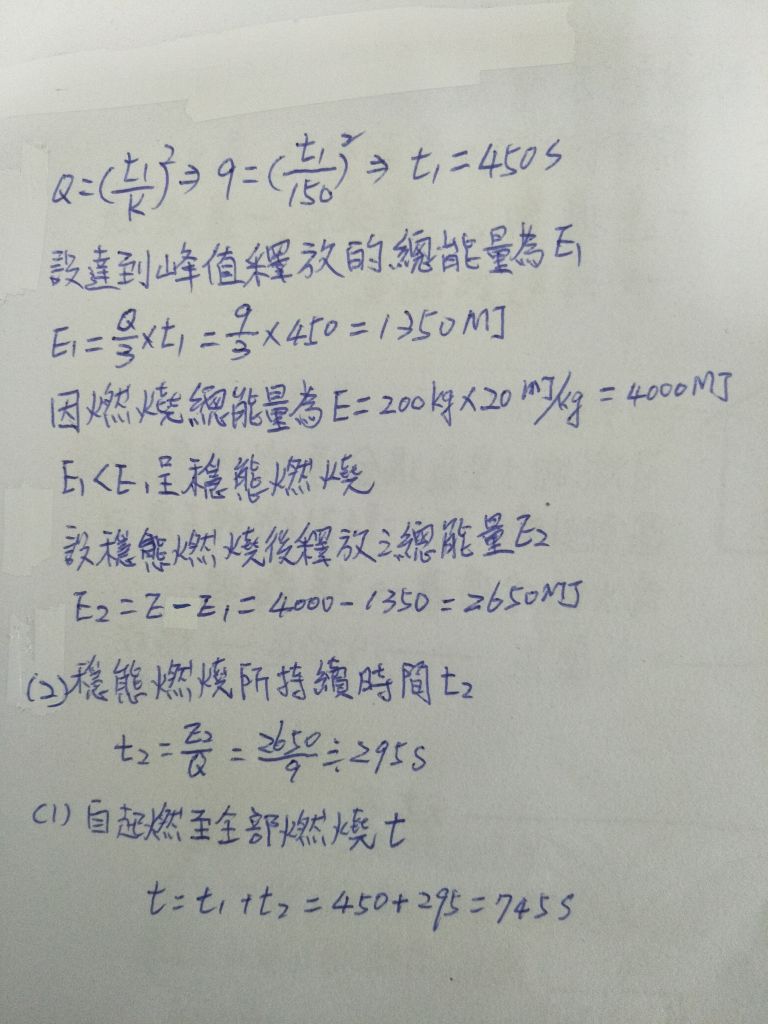 Q=(t₁/K)² ⇒ 9=(t₁/150)² ⇒ t₁=450S
設達到峰值釋放的總能量為E₁
E₁=Q/3×t₁=9/3×450=1350MJ
因燃燒總能量為E=200kg×20MJ/kg=4000MJ
E₁<E,呈穩態燃燒
設穩態燃燒後釋放之總能量E₂
E₂=E-E₁=4000-1350=2650MJ
(2)穩態燃燒所持續時間t₂
t₂=E₂/Q=2650/9≒295S
(1)自起燃至全部燃燒t
t=t₁+t₂=450+295=745S